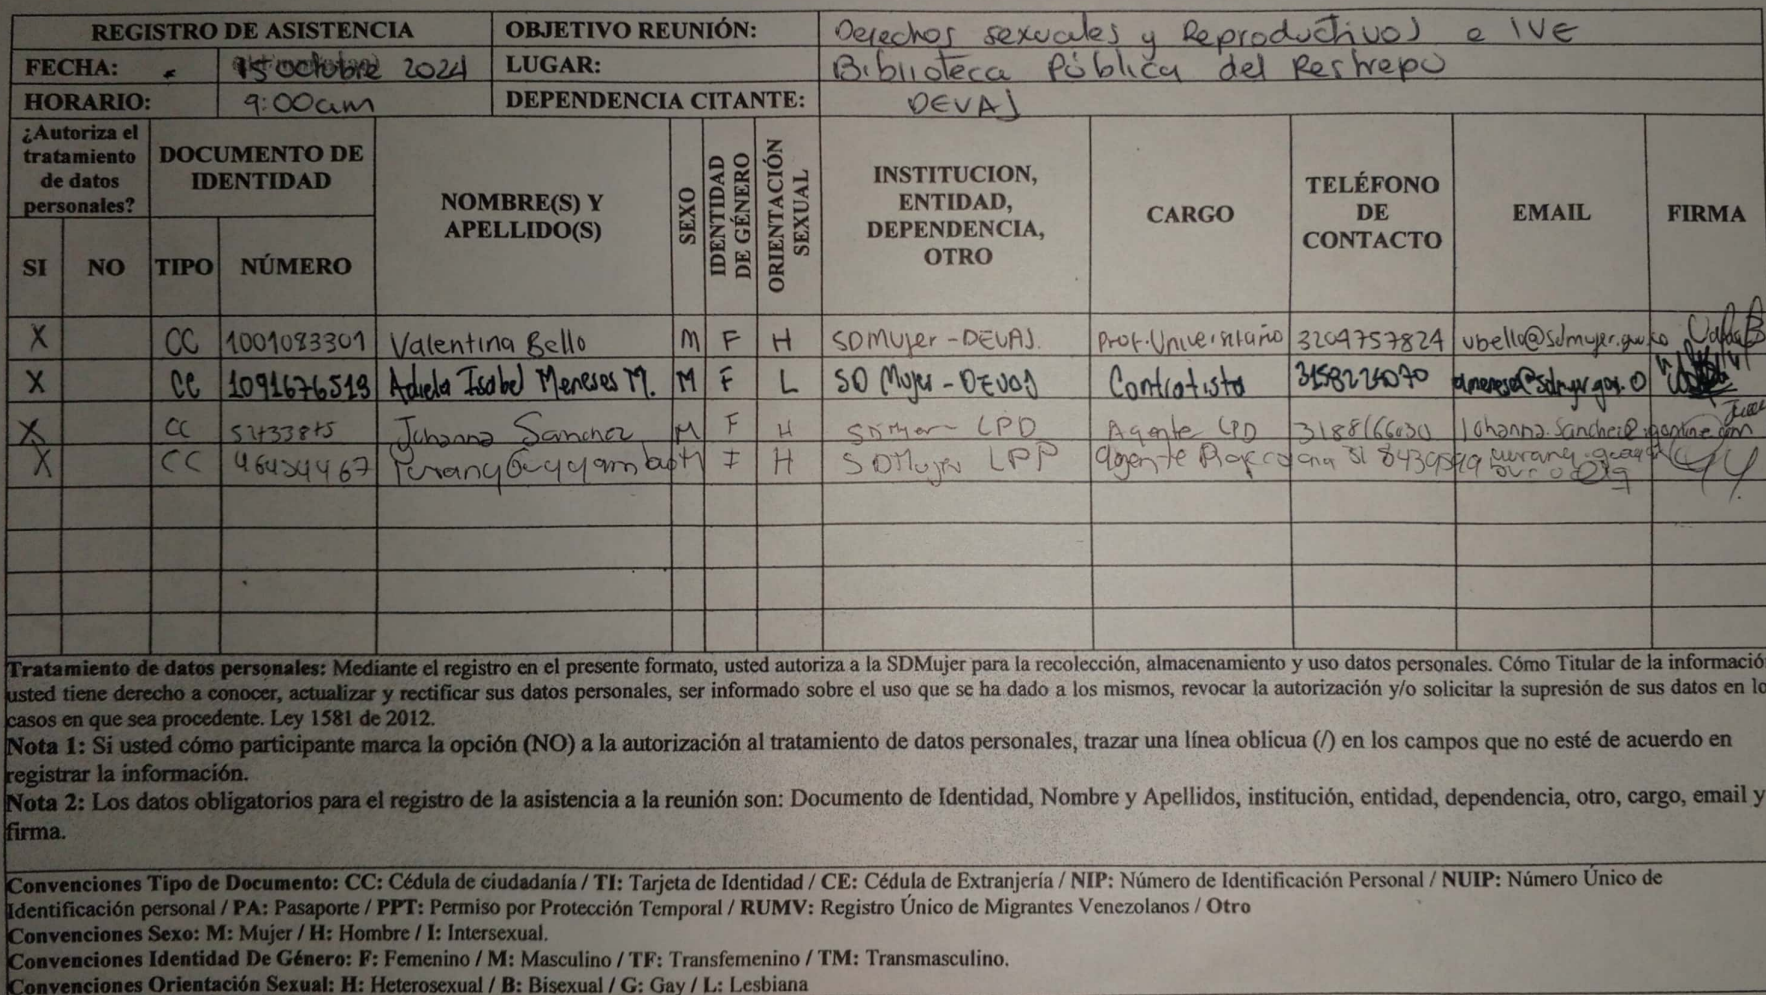 REGISTRO DE ASISTENCIA OBJETIVO REUNIÓN: Derechos sexuales y Reproductivos e IVE
FECHA: 15 octubre 2024 LUGAR: Biblioteca Pública del Restrepo
HORARIO: 9:00am DEPENDENCIA CITANTE: DEVAJ
¿Autoriza el tratamiento de datos personales?
SI NO
DOCUMENTO DE IDENTIDAD
TIPO NÚMERO
NOMBRE(S) Y APELLIDO(S)
SEXO
IDENTIDAD DE GÉNERO
ORIENTACIÓN SEXUAL
INSTITUCION, ENTIDAD, DEPENDENCIA, OTRO
CARGO
TELÉFONO DE CONTACTO
EMAIL
FIRMA
X CC 1001083301 Valentina Bello M F H SDMujer-DEVAJ. Prof. Universitario 3204757824
X CC 1091676519 Adiela Isabel Meneses M. M F L SD Mujer-DEVAJ Contratista
X CC Johanna Sanchez M F H LPD Agente LPD
X CC H SDMujer agente
Tratamiento de datos personales: Mediante el registro en el presente formato, usted autoriza a la SDMujer para la recolección, almacenamiento y uso datos personales. Cómo Titular de la informació
usted tiene derecho a conocer, actualizar y rectificar sus datos personales, ser informado sobre el uso que se ha dado a los mismos, revocar la autorización y/o solicitar la supresión de sus datos en lo
casos en que sea procedente. Ley 1581 de 2012.
Nota 1: Si usted cómo participante marca la opción (NO) a la autorización al tratamiento de datos personales, trazar una línea oblicua (/) en los campos que no esté de acuerdo en
registrar la información.
Nota 2: Los datos obligatorios para el registro de la asistencia a la reunión son: Documento de Identidad, Nombre y Apellidos, institución, entidad, dependencia, otro, cargo, email y
firma.
Convenciones Tipo de Documento: CC: Cédula de ciudadanía / TI: Tarjeta de Identidad / CE: Cédula de Extranjería / NIP: Número de Identificación Personal / NUIP: Número Único de
Identificación personal / PA: Pasaporte / PPT: Permiso por Protección Temporal / RUMV: Registro Único de Migrantes Venezolanos / Otro
Convenciones Sexo: M: Mujer / H: Hombre / I: Intersexual.
Convenciones Identidad De Género: F: Femenino / M: Masculino / TF: Transfemenino / TM: Transmasculino.
Convenciones Orientación Sexual: H: Heterosexual / B: Bisexual / G: Gay / L: Lesbiana